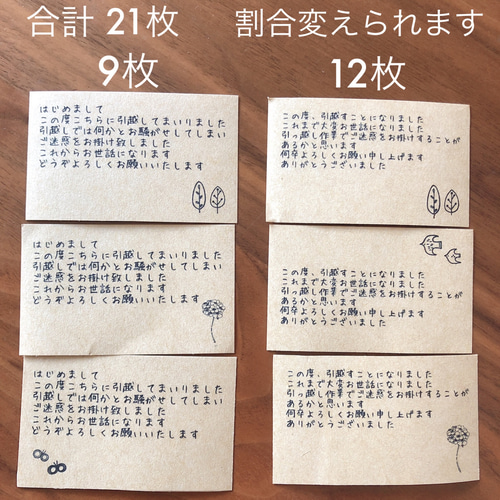 合計 21枚
9枚
割合変えられます
12枚
はじめまして
この度こちらに引越してまいりました
引越しでは何かとお騒がせしてしまい
ご迷惑をお掛け致しました
これからお世話になります
どうぞよろしくお願いいたします
はじめまして
この度こちらに引越してまいりました
引越しでは何かとお騒がせしてしまい
ご迷惑をお掛け致しました
これからお世話になります
どうぞよろしくお願いいたします
はじめまして
この度こちらに引越してまいりました
引越しでは何かとお騒がせしてしまい
ご迷惑をお掛け致しました
これからお世話になります
どうぞよろしくお願いいたします
この度、引越すことになりました
これまで大変お世話になりました
引っ越し作業でご迷惑をお掛けすることが
あるかと思います
何卒よろしくお願い申し上げます
ありがとうございました
この度、引越すことになりました
これまで大変お世話になりました
引っ越し作業でご迷惑をお掛けすることが
あるかと思います
何卒よろしくお願い申し上げます
ありがとうございました
この度、引越すことになりました
これまで大変お世話になりました
引っ越し作業でご迷惑をお掛けすることが
あるかと思います
何卒よろしくお願い申し上げます
ありがとうございました